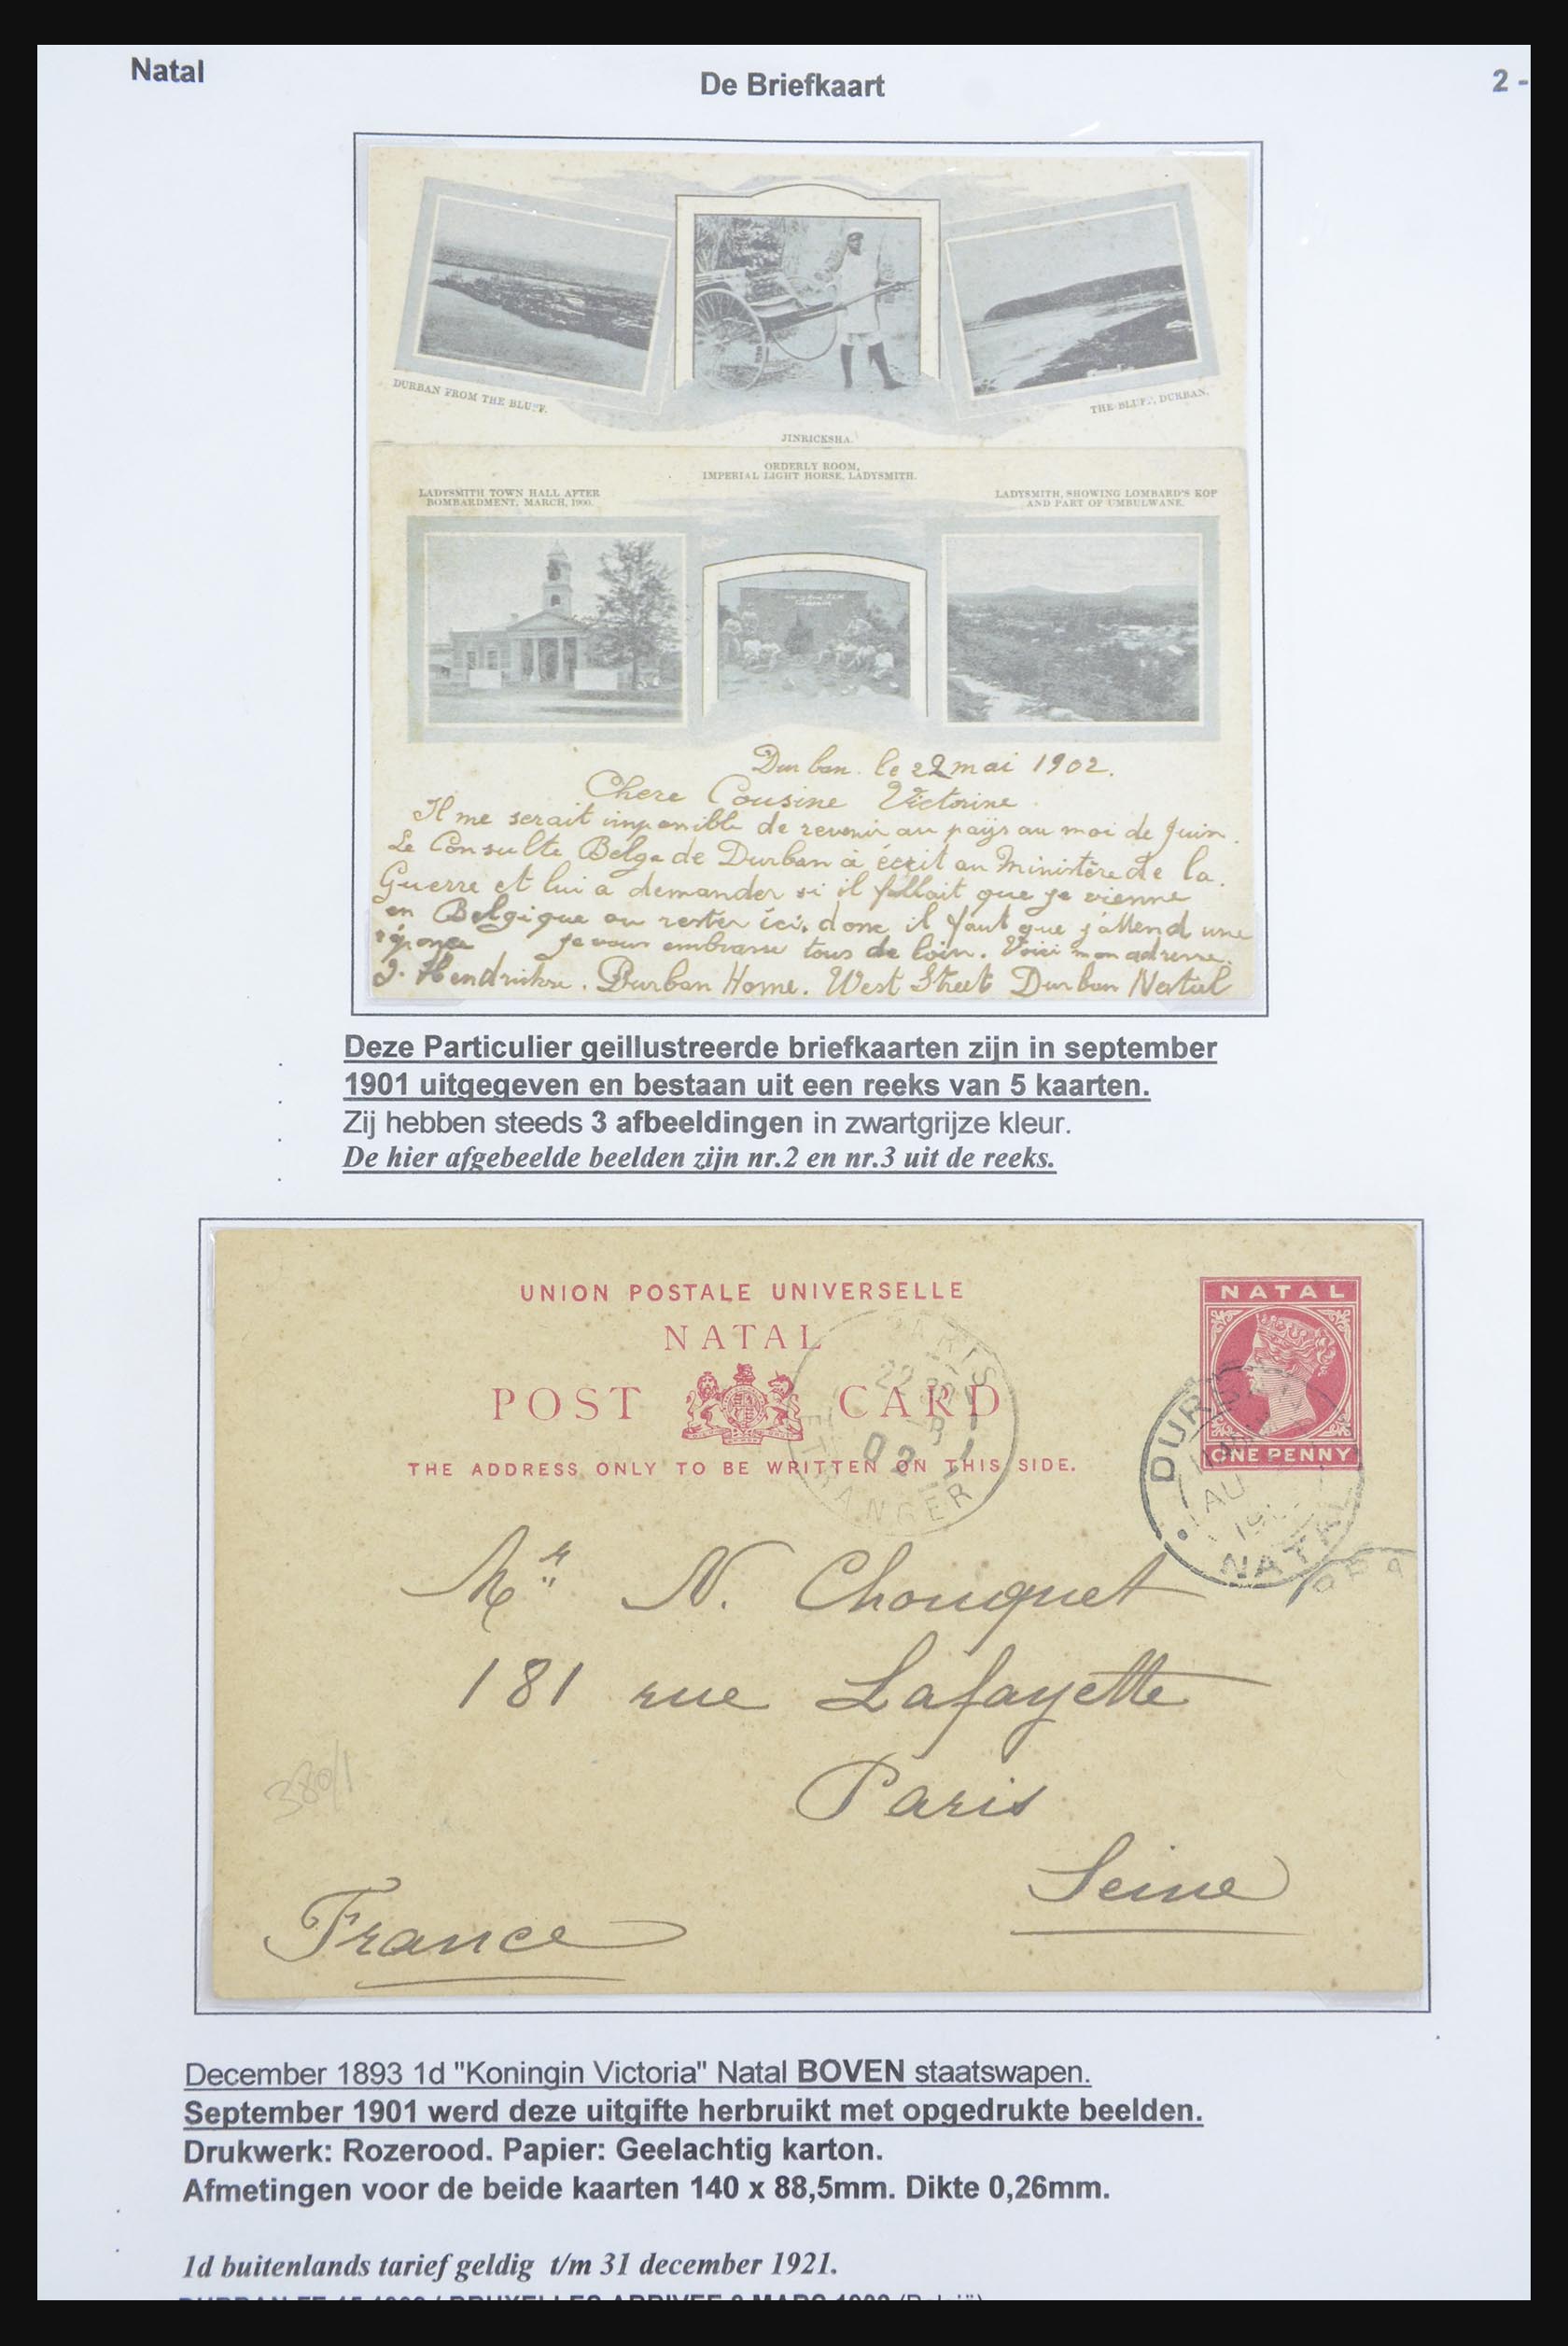 Natal
De Briefkaart
2 -
DURBAN FROM THE BLUFF.
JINRICKSHA.
THE BLUFF, DURBAN.
LADYSMITH TOWN HALL AFTER
BOMBARDMENT, MARCH, 1900.
ORDERLY ROOM,
IMPERIAL LIGHT HORSE, LADYSMITH.
LADYSMITH, SHOWING LOMBARD'S KOP
AND PART OF UMBULWANE.
Durban. le 22 mai 1902.
Chere Cousine Victorine
Il me serait imposible de revenir au pays au moi de Juin.
Le Consulte Belge de Durban à écrit au Ministère de la
Guerre et lui a demander si il fallait que je vienne
en Belgique ou rester ici. donc il faut que j'attend une
réponce je vous embrasse tous de loin. Voici mon adresse.
J. Hendrikse. Durban Home. West Street Durban Natal
Deze Particulier geillustreerde briefkaarten zijn in september
1901 uitgegeven en bestaan uit een reeks van 5 kaarten.
Zij hebben steeds 3 afbeeldingen in zwartgrijze kleur.
De hier afgebeelde beelden zijn nr.2 en nr.3 uit de reeks.
UNION POSTALE UNIVERSELLE
NATAL
POST CARD
THE ADDRESS ONLY TO BE WRITTEN ON THIS SIDE.
NATAL
ONE PENNY
PARIS
22
02
ETRANGER
NATAL
Mr N. Chouquet
181 rue Lafayette
Paris
Seine
France
380/1
December 1893 1d "Koningin Victoria" Natal BOVEN staatswapen.
September 1901 werd deze uitgifte herbruikt met opgedrukte beelden.
Drukwerk: Rozerood. Papier: Geelachtig karton.
Afmetingen voor de beide kaarten 140 x 88,5mm. Dikte 0,26mm.
1d buitenlands tarief geldig t/m 31 december 1921.